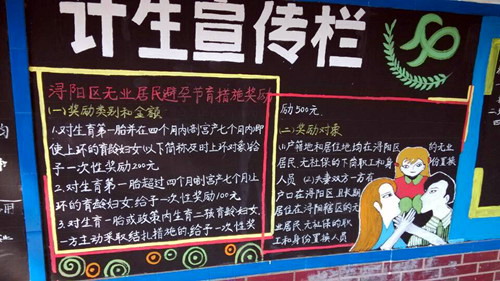 计生宣传栏
浔阳区无业居民避孕节育措施奖励
(一)奖励类别和金额
1.对生育第一胎并在四个月内(剖宫产七个月内)即
使上环的育龄妇女(以下简称及时上环对象)给
予一次性奖励200元
2.对生育第一胎超过四个月(剖宫产七个月)上
环的育龄妇女,给予一次性奖励100元
3.对生育一胎或政策内生育一孩育龄妇女,
一方主动采取结扎措施的,给予一次性奖
励500元
(二)奖励对象
(1)户籍和居住地均在浔阳区的无业
居民 无社保的下岗职工和身份置换
人员 (2)夫妻双方一方有
户口在浔阳区且长期
居住在浔阳辖区的无
业居民 无社保的职
工和身份置换人员